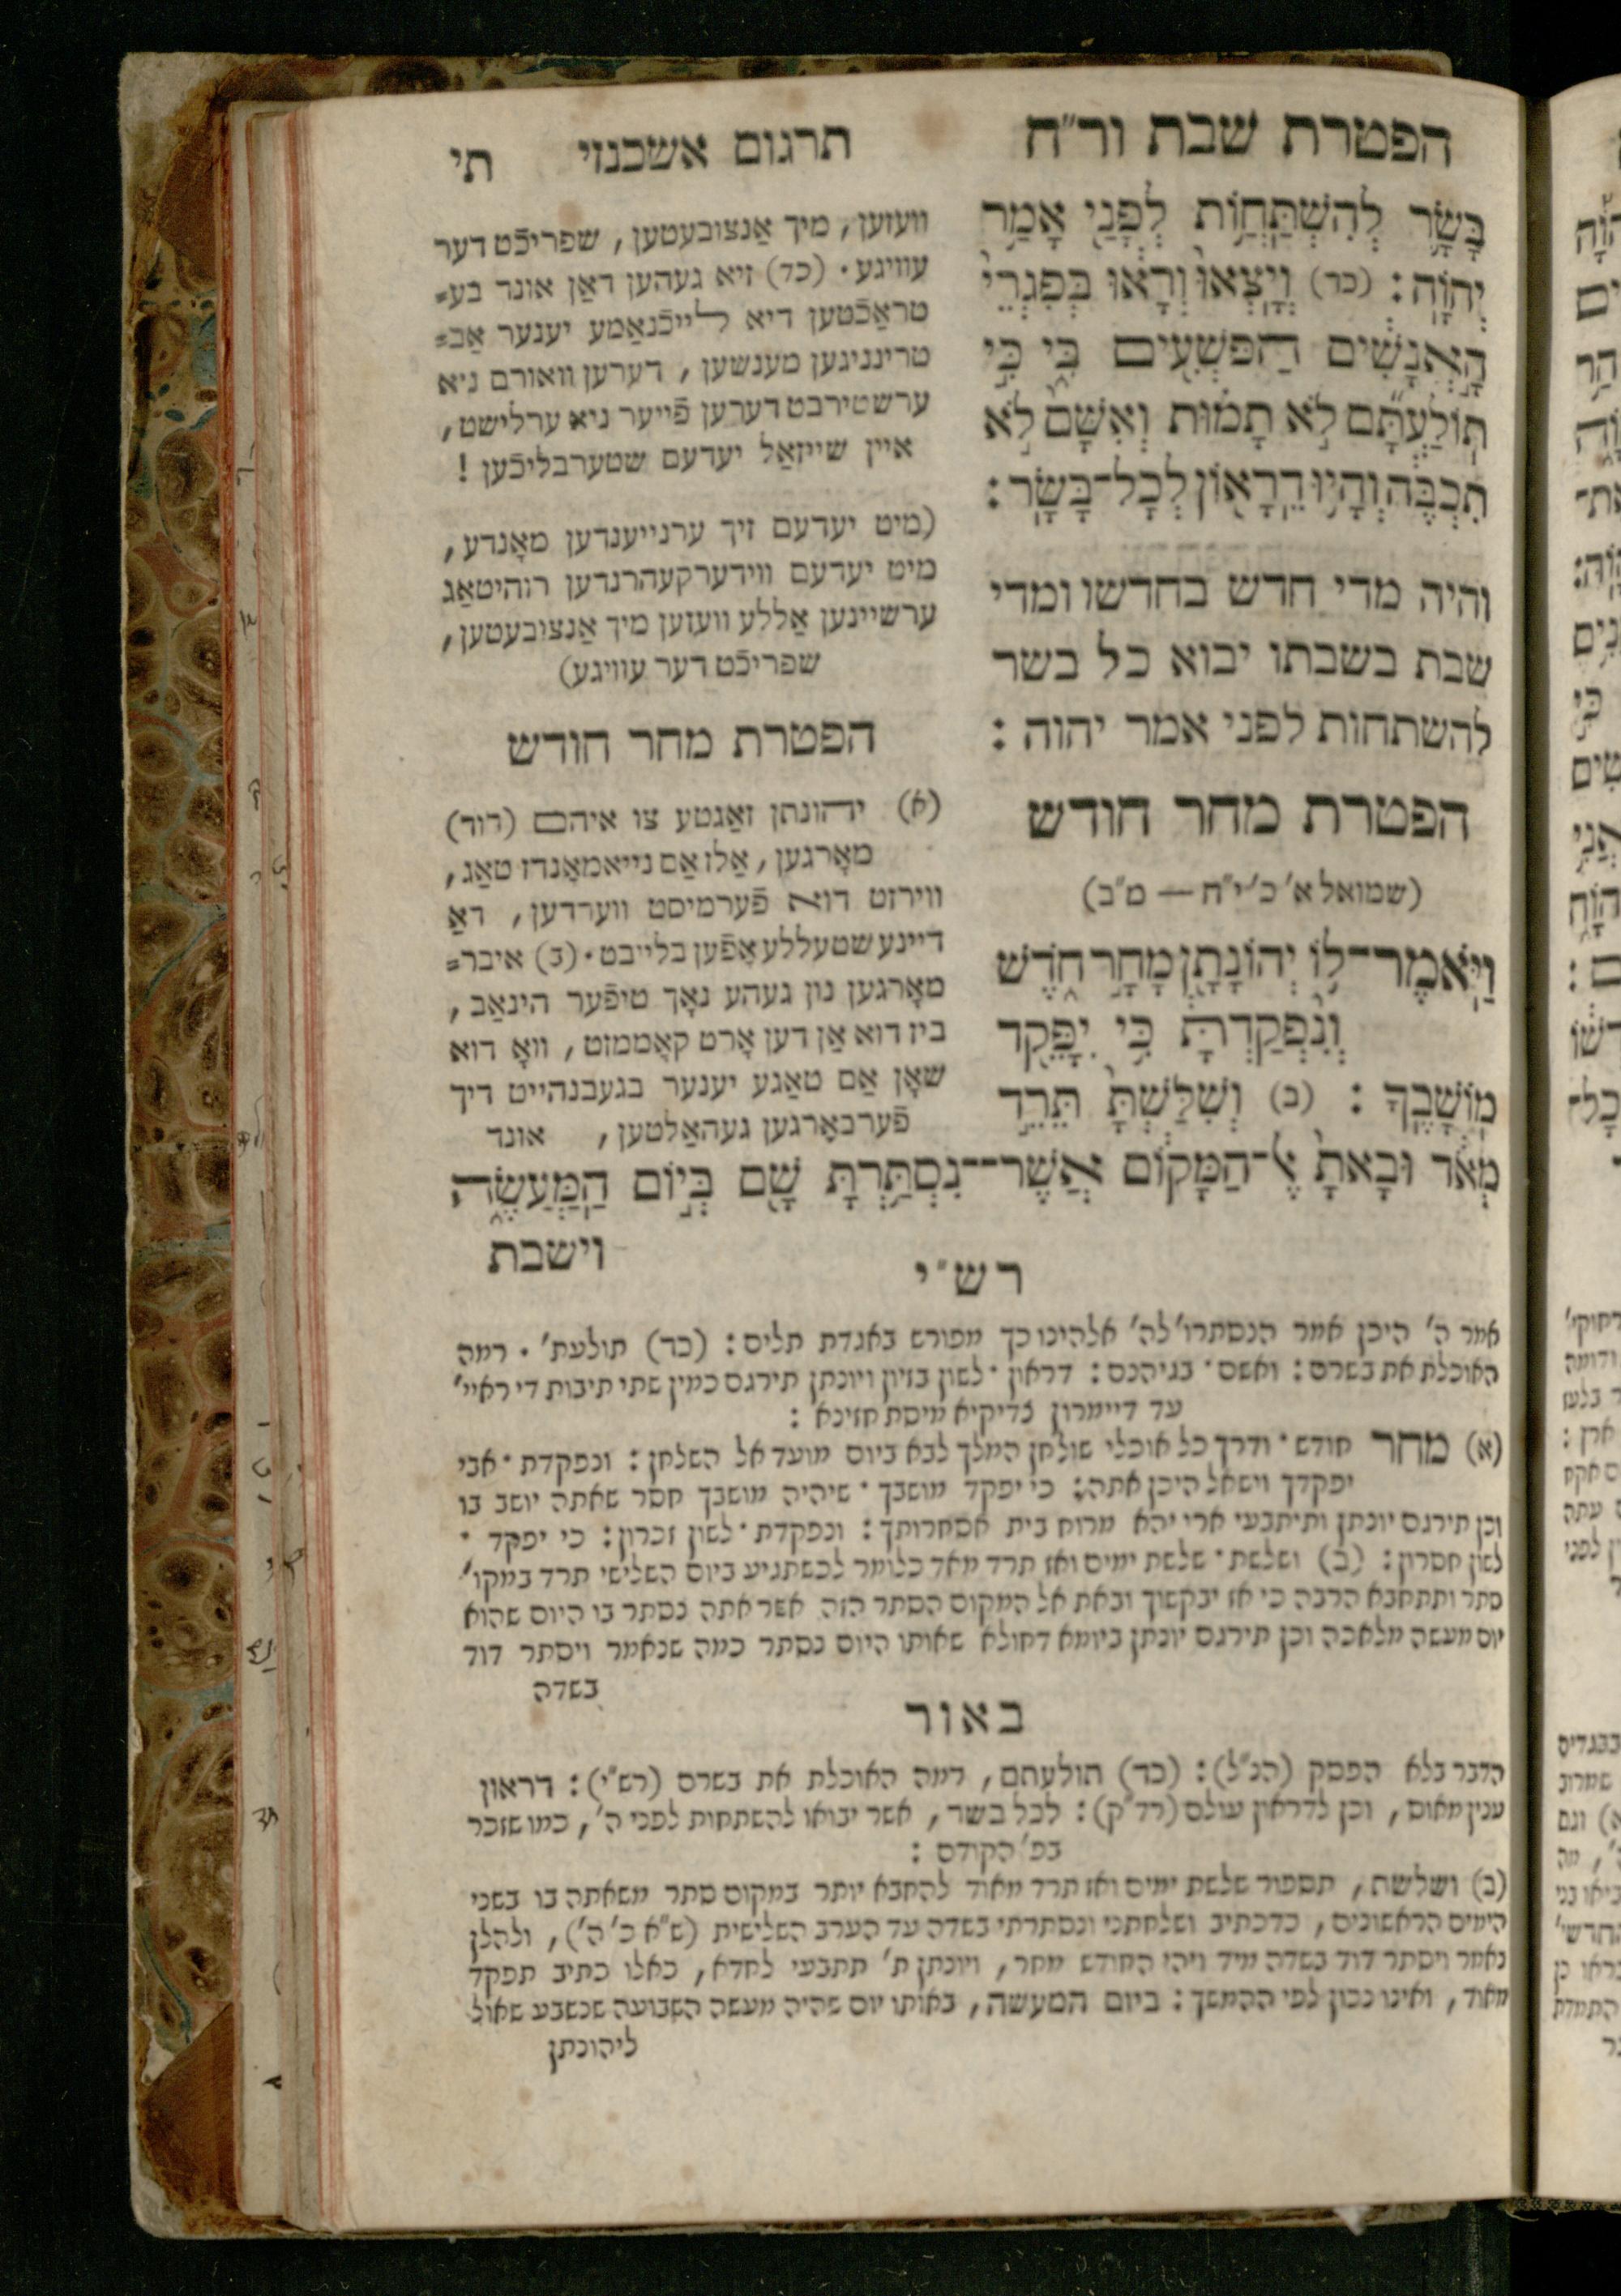 הפטרת שבת ור״ח
בָּשָׂר לְהִשְׁתַּחֲוֹת לְפָנַי אָמַר
יְהוָה׃ (כד) וְיָצְאוּ וְרָאוּ בְּפִגְרֵי
הָאֲנָשִׁים הַפֹּשְׁעִים בִּי כִּי
תוֹלַעְתָּם לֹא תָמוּת וְאִשָּׁם לֹא
תִכְבֶּה וְהָיוּ דֵרָאוֹן לְכָל־בָּשָׂר׃
והיה מדי חדש בחדשו ומדי
שבת בשבתו יבוא כל בשר
להשתחות לפני אמר יהוה :
הפטרת מחר חודש
(שמואל א׳ כ׳ י״ח — מ״ב)
וַיֹּאמֶר־לוֹ יְהוֹנָתָן מָחָר חֹדֶשׁ
וְנִפְקַדְתָּ כִּי יִפָּקֵד
מוֹשָׁבֶךָ : (ב) וְשִׁלַּשְׁתָּ תֵּרֵד
תרגום אשכנזי תי
וועזען, מיך אַנצובעטען, שפריכֿט דער
עוויגע. (כד) זיא געהען דאַן אונד בע=
טראַכֿטען דיא לייכֿנאַמע יענער אַב=
טרינניגען מענשען, דערען וואורם ניא
ערשטירבט דערען פֿייער ניא ערלישט,
איין שייזאַל יעדעם שטערבליכֿען !
(מיט יעדעם זיך ערנייענדען מאָנדע,
מיט יעדעם ווידערקעהרנדען רוהיטאַג
ערשיינען אַללע וועזען מיך אַנצובעטען,
שפריכֿט דער עוויגע)
הפטרת מחר חודש
(א) יהונתן זאַגטע צו איהם (דוד)
מאָרגען, אַלז אַם נייאמאָנדז טאַג,
ווירזט דוא פֿערמיסט ווערדען, דאַ
דיינע שטעללע אָפֿען בלייבט. (ב) איבר=
מאָרגען נון געהע נאָך טיפֿער הינאַב,
ביז דוא אַן דען אָרט קאָממזט, וואָ דוא
שאָן אַם טאַגע יענער בגעבנהייט דיך
פֿערבאָרגען געהאַלטען, אונד
מְאֹד וּבָאתָ אֶל־הַמָּקוֹם אֲשֶׁר־נִסְתַּרְתָּ שָּׁם בְּיוֹם הַמַּעֲשֶׂה
וישבת
רש״י
אמר ה׳ היכן אמר הנסתרו׳ לה׳ אלהינו כך מפורש באגדת תלים : (כד) תולעת׳ . רמה
האוכלת את בשרם : ואשם . בגיהנם : דראון . לשון בזיון ויונתן תירגם כמין שתי תיבות די ראיי׳
עד דיימרון צדיקיא מיסת חזינא :
(א) מחר חודש . ודרך כל אוכלי שולחן המלך לבא ביום מועד אל השלחן : ונפקדת . אבי
יפקדך וישאל היכן אתה : כי יפקד מושבך . שיהיה מושבך חסר שאתה יושב בו
וכן תירגם יונתן ותיתבעי ארי יהא מרוח בית אסחרותך : ונפקדת . לשון זכרון : כי יפקד .
לשון חסרון : (ב) ושלשת . שלשת ימים ואז תרד מאד כלומר לכשתגיע ביום השלישי תרד במקו׳
סתר ותתחבא הרבה כי אז יבקשוך ובאת אל המקום הסתר הזה אשר אתה נסתר בו היום שהוא
יום מעשה מלאכה וכן תירגם יונתן ביומא דחולא שאותו היום נסתר כמה שנאמר ויסתר דוד
בשדה
באור
הדבר בלא הפסק (הנ״ל) : (כד) תולעתם, רמה האוכלת את בשרם (רש״י) : דראון
ענין מאוס, וכן לדראון עולם (רד״ק) : לכל בשר, אשר יבואו להשתחות לפני ה׳, כמו שזכר
בפ׳ הקודם :
(ב) ושלשת, תספור שלשת ימים ואז תרד מאוד להחבא יותר במקום סתר משאתה בו בשני
הימים הראשונים, כדכתיב ושלחתני ונסתרתי בשדה עד הערב השלישית (ש״א כ׳ ה׳), ולהלן
נאמר ויסתר דוד בשדה מיד ויהי החודש מחר, ויונתן ת׳ תתבעי לחדא, כאלו כתיב תפקד
מאוד, ואינו נכון לפי ההמשך : ביום המעשה, באותו יום שהיה מעשה השבועה שנשבע שאול
ליהונתן